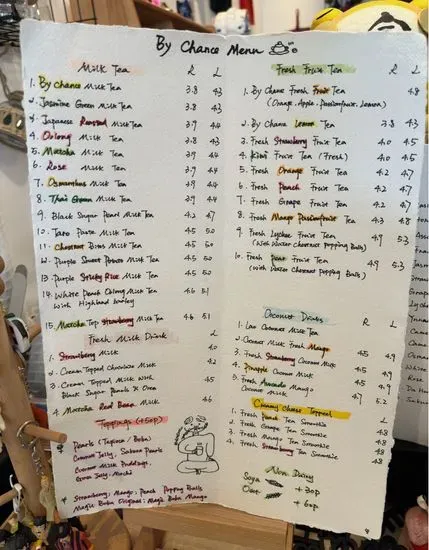 By Chance Menu
Milk Tea R L
1. By Chance Milk Tea 3.8 4.3
2. Jasmine Green Milk Tea 3.8 4.3
3. Japanese Roasted Milk Tea 3.9 4.4
4. Oolong Milk Tea 3.8 4.3
5. Matcha Milk Tea 3.9 4.4
6. Rose Milk Tea 3.9 4.4
7. Osmanthus Milk Tea 3.9 4.4
8. Thai Green Milk Tea 3.9 4.4
9. Black Sugar Pearl Milk Tea 4.2 4.7
10. Taro Paste Milk Tea 4.5 5.0
11. Chestnut Bits Milk Tea 4.5 5.0
12. Purple Sweet Potato Milk Tea 4.5 5.0
13. Purple Sticky Rice Milk Tea 4.5 5.0
14. White Peach Oolong Milk Tea 4.6 5.1
With Highland barley
15. Matcha Top Strawberry Milk Tea 4.6 5.1
Fresh Milk Drink L
1. Strawberry Milk 4.0
2. Cream Topped Chocolate Milk 4.2
3. Cream Topped Milk with 4.5
Black Sugar Pearls &
4. Matcha Red Bean Milk 4.6
Toppings (+50p)
Pearls (Tapioca / Boba)
Coconut Jelly; Sakura Pearls
Milk Pudding;
Grass Jelly; Mochi
Strawberry; Mango; Peach Popping Balls
Magic Boba Original; Magic Boba Mango
Fresh Fruit Tea R L
1. By Chance Fresh Fruit Tea 4.8
(Orange, Apple, Passionfruit, Lemon)
2. By Chance Lemon Tea 3.8 4.3
3. Fresh Strawberry Fruit Tea 4.0 4.5
4. Kiwi Fruit Tea (Fresh) 4.0 4.5
5. Fresh Orange Fruit Tea 4.2 4.7
6. Fresh Peach Fruit Tea 4.2 4.7
7. Fresh Grape Fruit Tea 4.2 4.7
8. Fresh Mango Passionfruit Tea 4.3 4.8
9. Fresh Lychee Fruit Tea 4.9 5.3
(with Water Chestnut popping Balls)
10. Fresh Pear Fruit Tea 4.9 5.3
(with Water Chestnut popping Balls)
Coconut Drinks R L
1. Coconut Milk Tea
2. Coconut Milk Fresh Mango 4.5 4.9
3. Fresh Strawberry Coconut Milk 4.5 4.9
4. Pineapple Coconut Milk 4.5 4.9
5. Fresh Avocado Mango 4.7 5.2
Coconut Milk
Creamy Cheese Topped L
1. Fresh Peach Tea Smoothie 4.8
2. Fresh Grape Tea Smoothie 4.8
3. Fresh Mango Tea Smoothie 4.8
4. Fresh Strawberry Tea Smoothie 4.8
Non Dairy
Soya + 30p
Oat + 60p